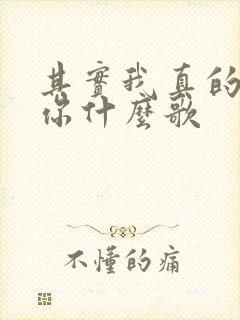 其實我真的
你什麼歌
不懂的痛